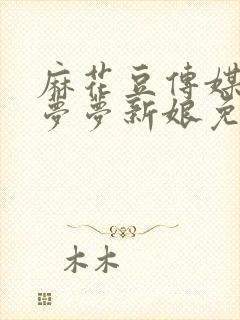 麻花豆傳媒
夢夢新娘免
木木